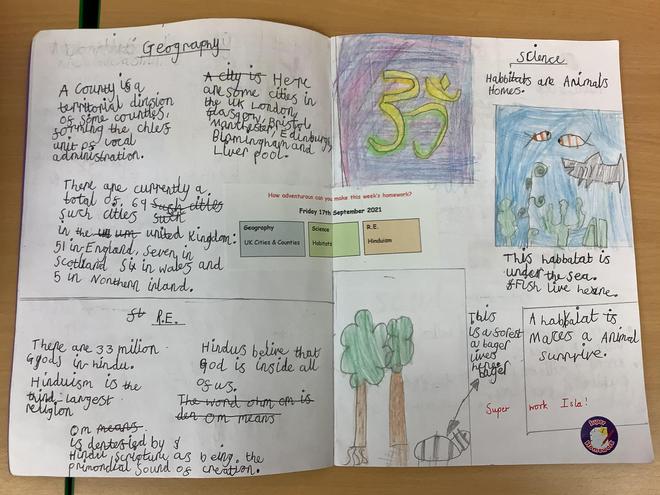 Geography
A County is a
territorial division
of some counties,
forming the chies
unit of local
administration.
A city is Here
are some cities in
the UK London,
Glasgow, Bristol
Manchester, Edinburgh,
Birmingham and
Liver pool.
There are currently a
total of. 69 Such cities
Such cities
in the united Kingdom:
51 in England, Seven in
Scotland Six in wales and
5 in Northern inland.
R.E.
There are 33 million
Gods in hindu.
Hinduism is the
third largest
religion
Om means
is dentesied by
Hindu scripture as being the
primordial Sound of creation.
Hindus belive that
God is inside all
of us.
The word ohm om is
Om means
How adventurous can you make this week's homework?
Friday 17th September 2021
Geography
UK Cities & Counties
Science
Habitats
R.E.
Hinduism
ॐ
Science
Habbitats are Animals
Homes.
This habbatat is
under the sea.
Fish live here.
This
is a forest
a bager
lives
here.
bager
A habbalat is
Makes a Animal
survive.
Super work Isla!
Super